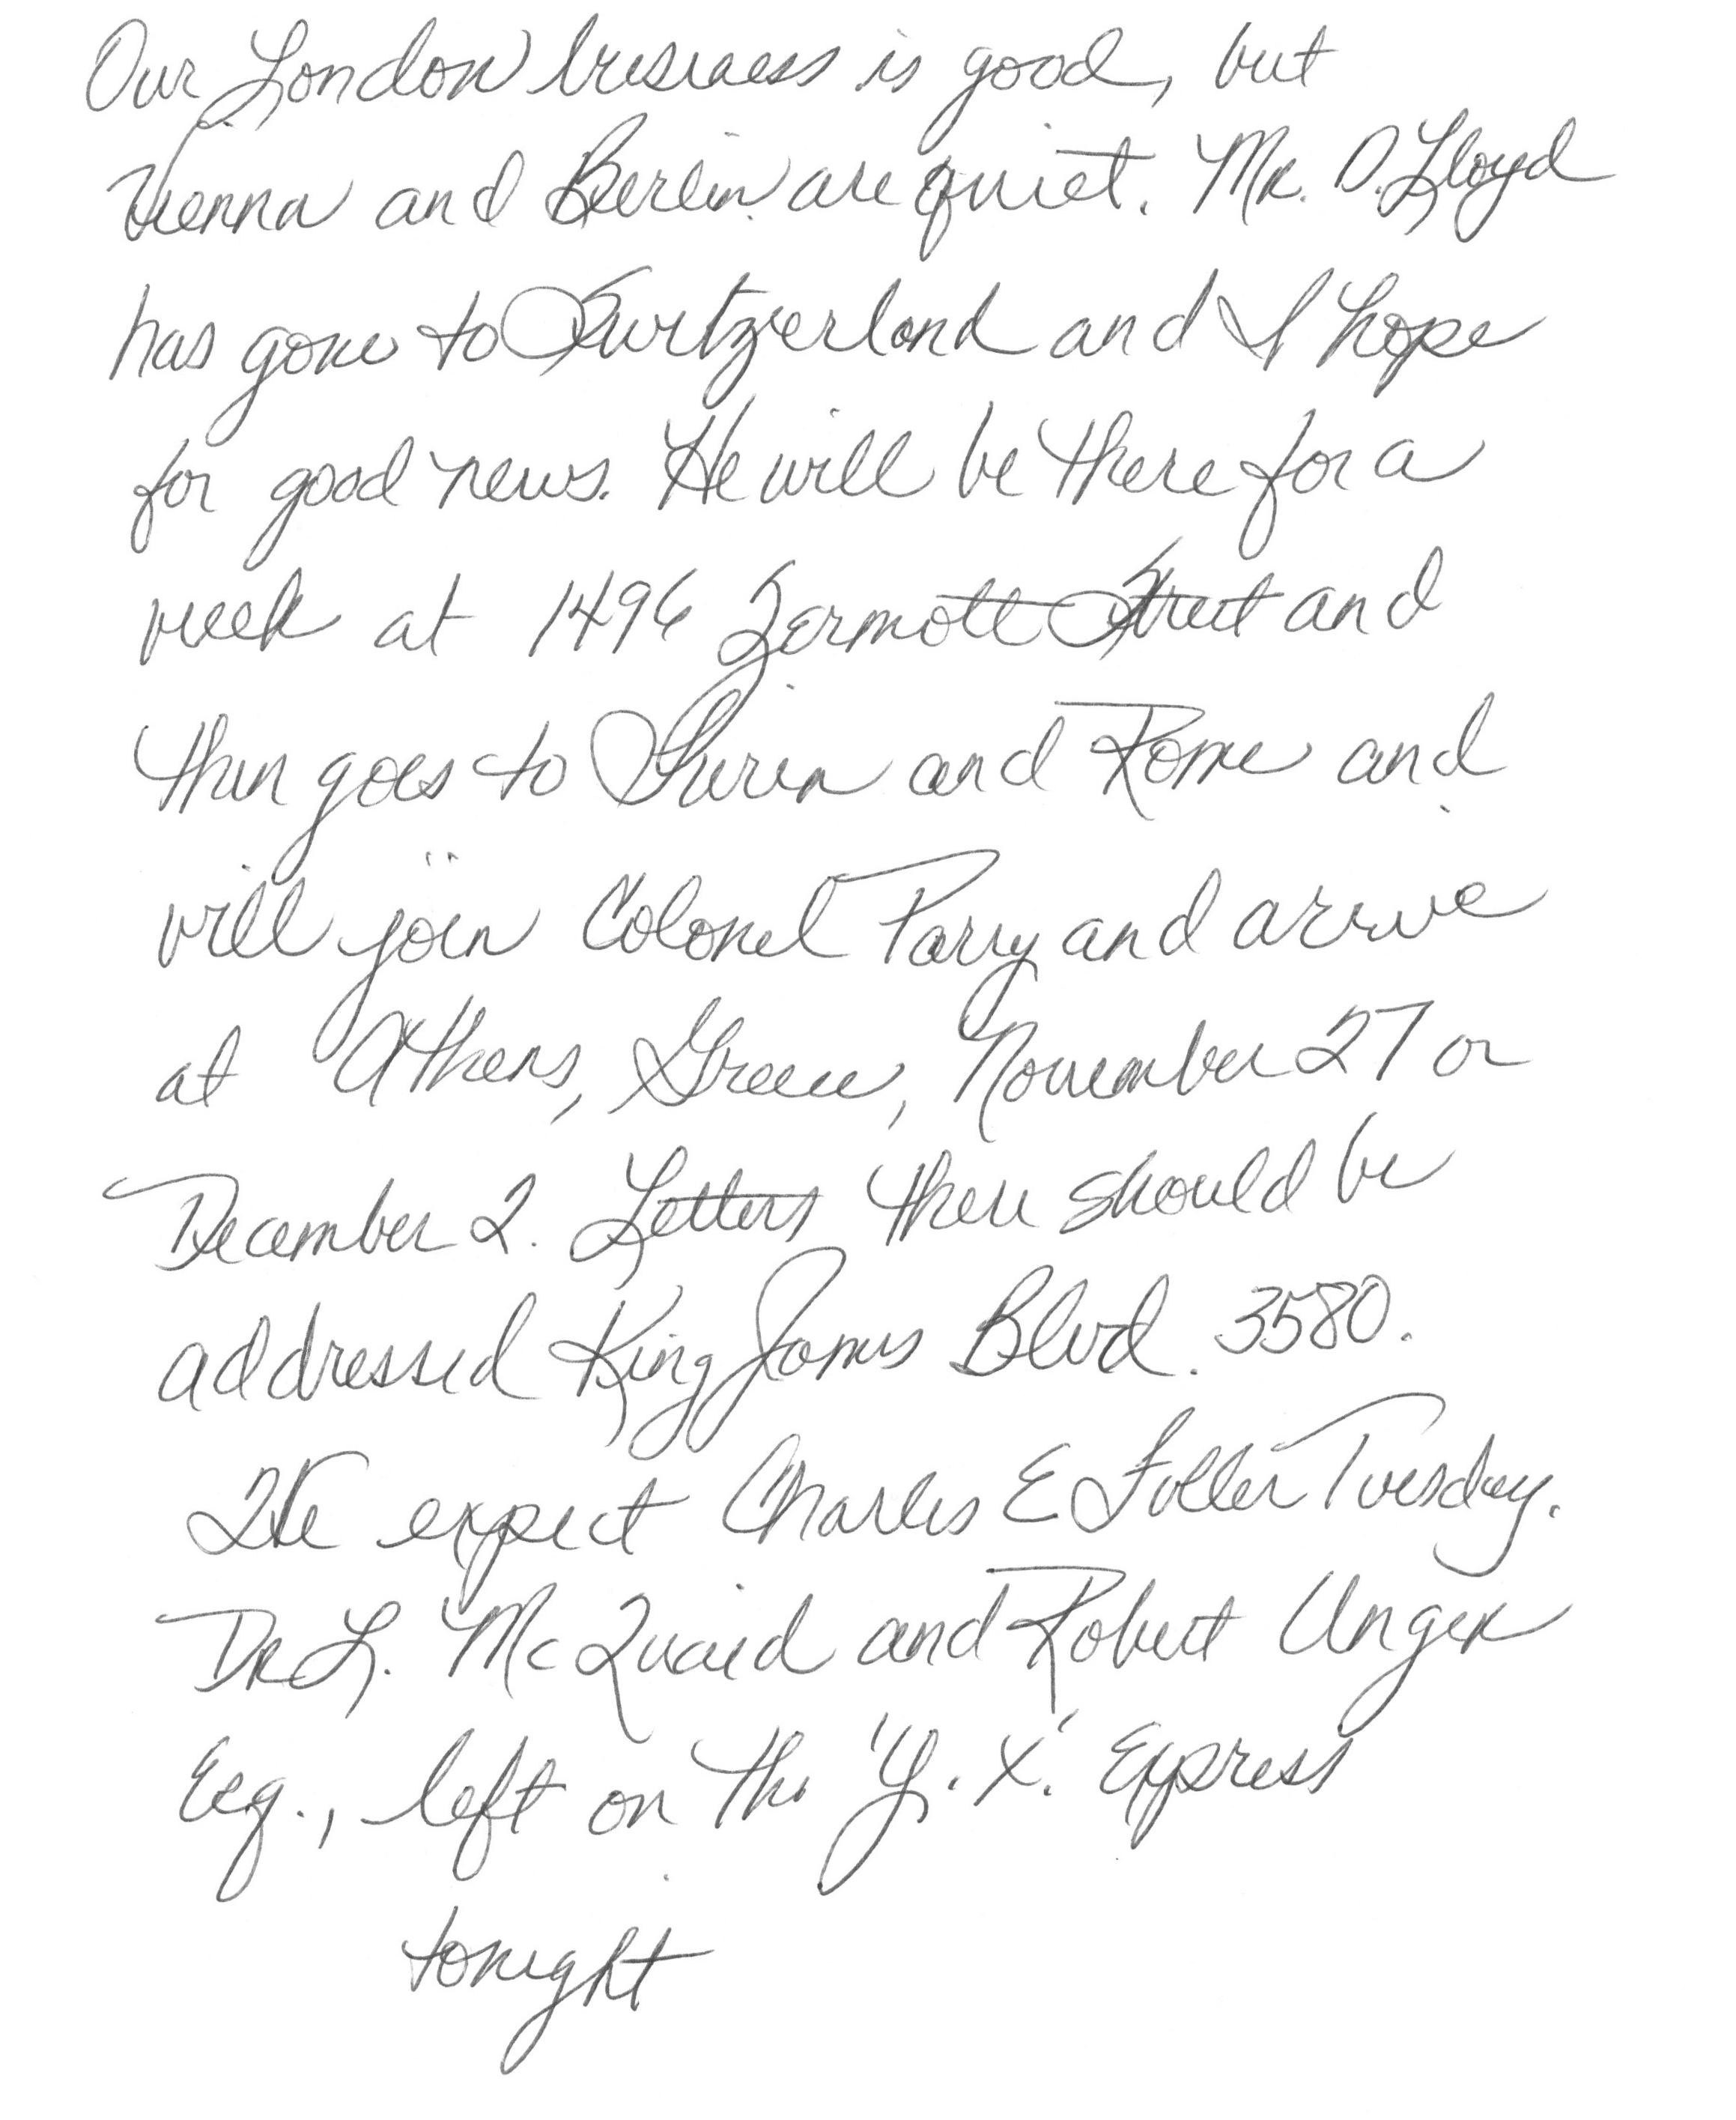 Our London business is good, but
Vienna and Berlin are quiet. Mr. D. Lloyd
has gone to Switzerland and I hope
for good news. He will be there for a
week at 1496 Zermott Street and
then goes to Turin and Rome and
will join Colonel Parry and arrive
at Athens, Greece, November 27 or
December 2. Letters there should be
addressed King James Blvd. 3580.
We expect Charles E Fuller Tuesday.
Dr L. McQuaid and Robert Unger
Esq., left on the 'Y. X.' Express
tonight